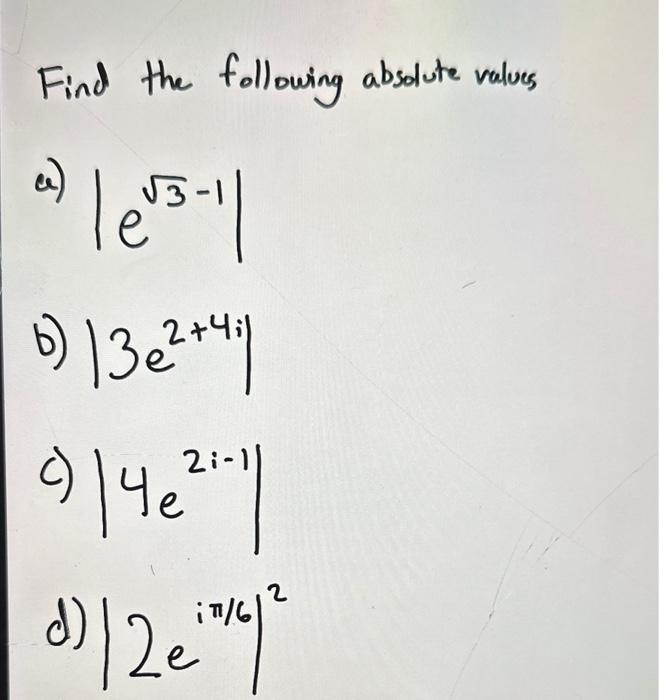 Find the following absolute values
a) |e^{√3-1}|
b) |3e^{2+4i}|
c) |4e^{2i-1}|
d) |2e^{iπ/6}|^2